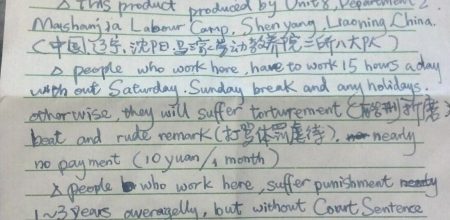 △ This product produced by Unit 8, Department 2,
Mashanjia Labour Camp, Shenyang, Liaoning China.
(中国,辽宁,沈阳,马三家劳动教养院二所八大队)
△ people who work here, have to work 15 hours a day
with out Saturday, Sunday break and any holidays.
otherwise, they will suffer torturement (折磨
beat and rude remark (打骂体罚虐待). nearly
no payment (10 yuan/1 month)
△ people who work here, suffer punishment
1~3 years averagelly, but without Court Sentence